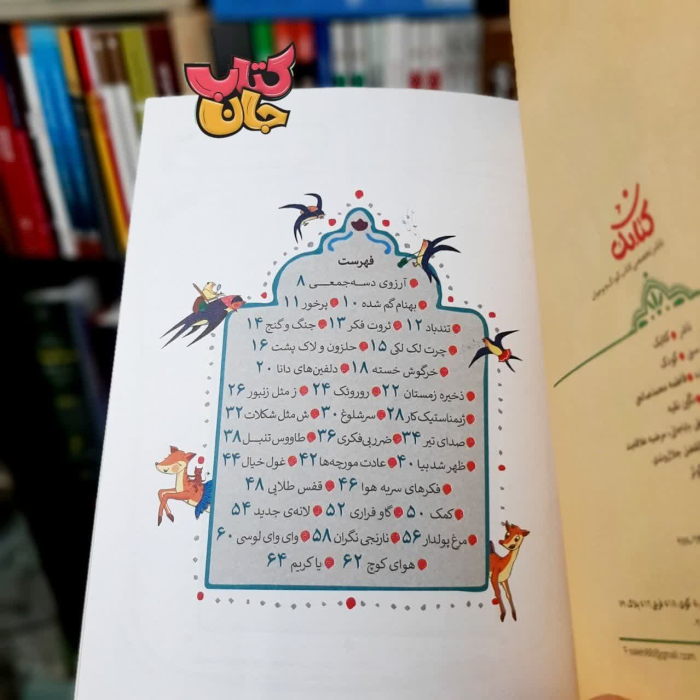 کتاب
جان
فهرست
آرزوی دسته‌جمعی ۸
بهنام گم شده ۱۰ پرخور ۱۱
تندباد ۱۲ ثروت فکر ۱۳ جنگ و گنج ۱۴
چرت لک لکی ۱۵ حلزون و لاک پشت ۱۶
خرگوش خسته ۱۸ دلفین‌های دانا ۲۰
ذخیره زمستان ۲۲ روروئک ۲۴ ز مثل زنبور ۲۶
ژیمناستیک کار ۲۸ سرشلوغ ۳۰ ش مثل شکلات ۳۲
صدای تیر ۳۴ ضرر بی‌فکری ۳۶ طاووس تنبل ۳۸
ظهر شد بیا ۴۰ عادت مورچه‌ها ۴۲ غول خیال ۴۴
فکرهای سربه هوا ۴۶ قفس طلایی ۴۸
کمک ۵۰ گاو فراری ۵۲ لانه‌ی جدید ۵۴
مرغ پولدار ۵۶ نارنجی نگران ۵۸ وای وای لوسی ۶۰
هوای کوچ ۶۲ یا کریم ۶۴
کتابک